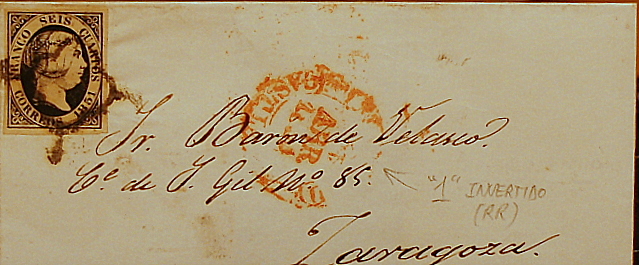 FRANCO SEIS CUARTOS
CORREOS 1851
Sr. Baron de Velasco.
Ce. de S. Gil No 85.
"1" INVERTIDO
(RR)
Zaragoza.